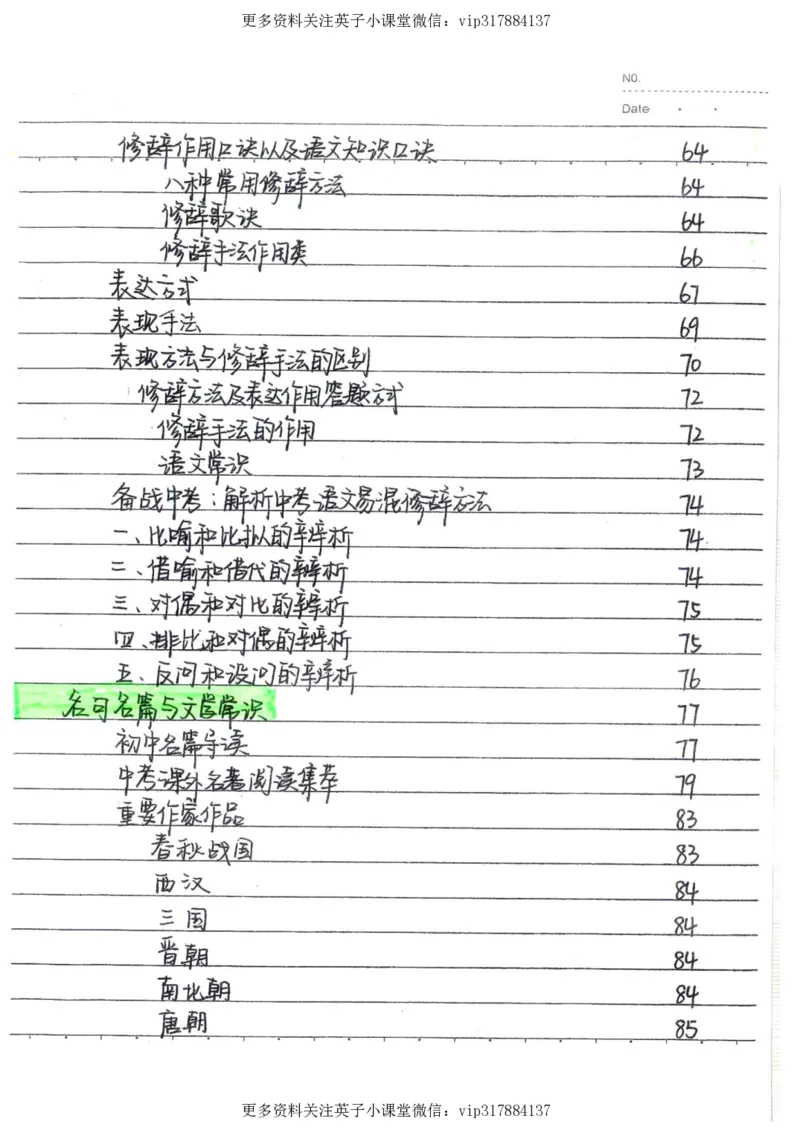 更多资料关注英子小课堂微信：vip317884137
NO.
Date
修辞作用口诀以及语文知识口诀 64
八种常用修辞方法 64
修辞歌诀 64
修辞手法作用类 66
表达方式 67
表现手法 69
表现方法与修辞手法的区别 70
修辞方法及表达作用答题方式 72
修辞手法的作用 72
语文常识 73
备战中考：解析中考语文易混修辞方法 74
一、比喻和比拟的辨析 74
二、借喻和借代的辨析 74
三、对偶和对比的辨析 75
四、排比和对偶的辨析 75
五、反问和设问的辨析 76
名句名篇与文学常识 77
初中名篇导读 77
中考课外名著阅读集萃 79
重要作家作品 83
春秋战国 83
西汉 84
三国 84
晋朝 84
南北朝 84
唐朝 85
更多资料关注英子小课堂微信：vip317884137